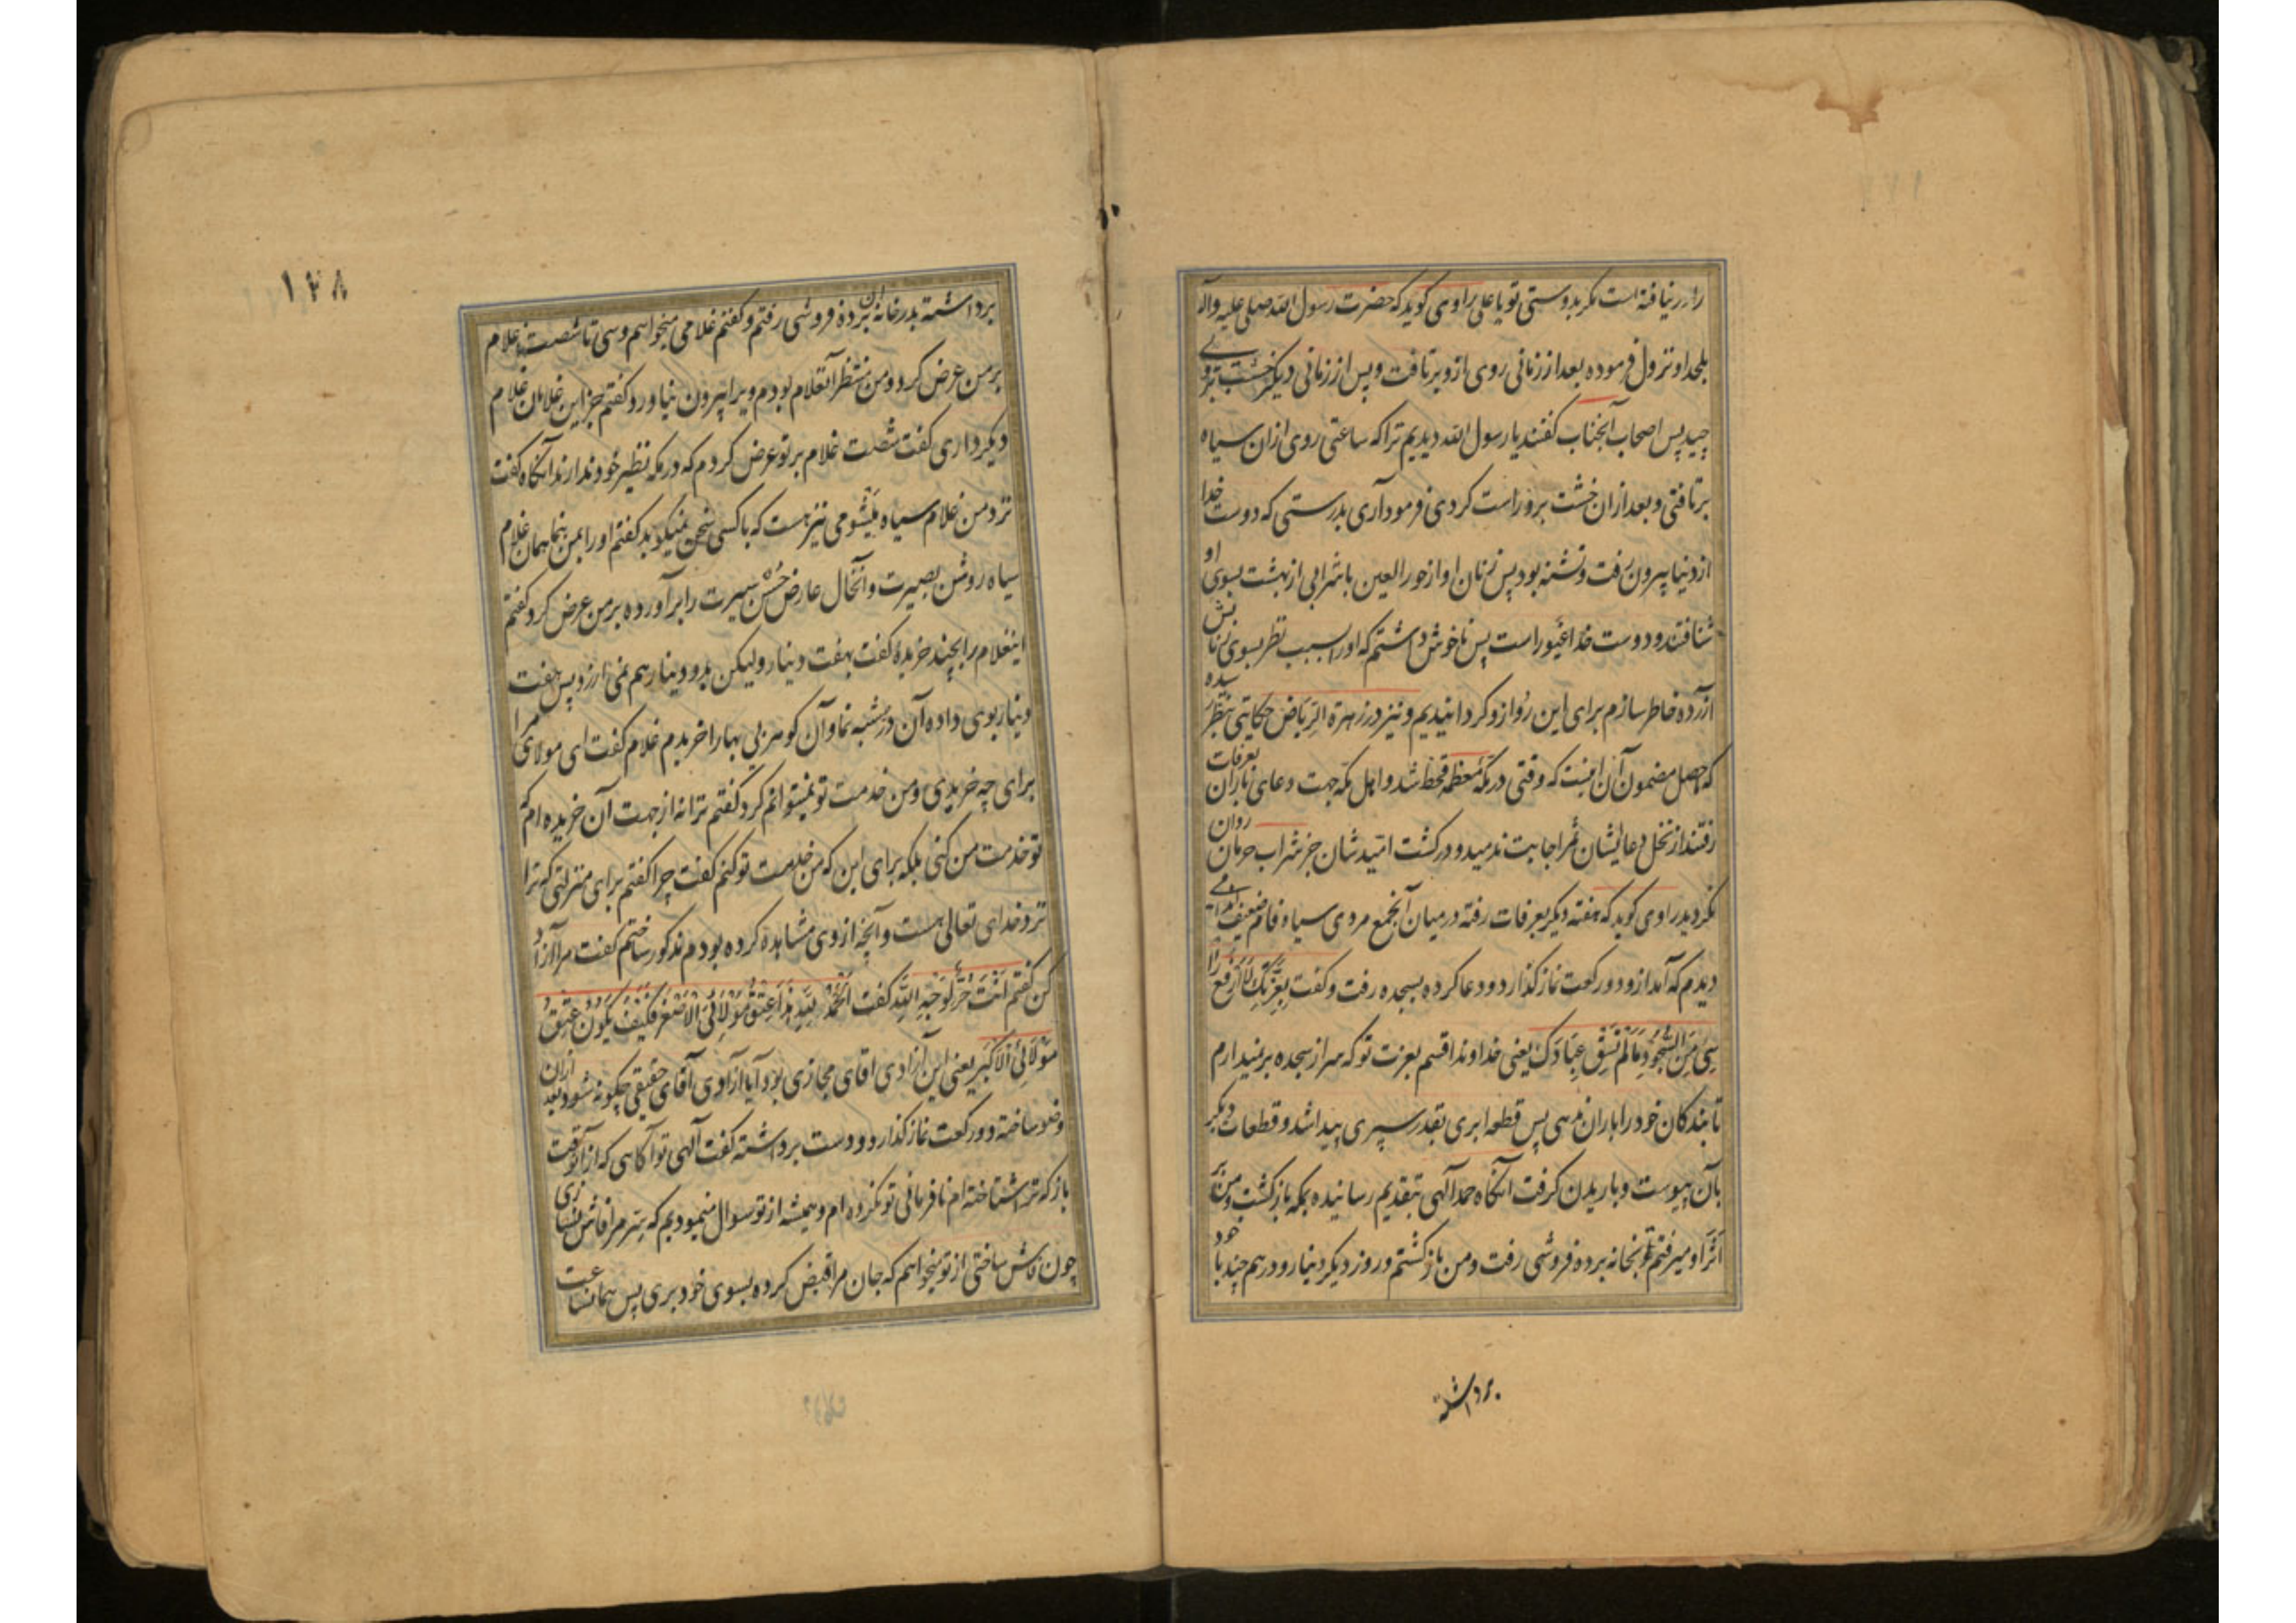 را در نیافته است مگر بدوستی تو یا علی راوی گوید که حضرت رسول الله صلی علیه وآله
بلحد او نزول فرموده بعد از زمانی روی ازو برتافت و پس از زمانی دیگر خشت برو
چید پس اصحاب آنجناب گفتند یا رسول الله دیدیم ترا که ساعتی روی ازان سیاه
برتافتی و بعد ازان خشت برو راست کردی فرمود آری بدرستی که دوست خدا
از دنیا بیرون رفت و تشنه بود پس زنان او از حور العین با شرابی از بهشت بسوی او
شتافتند و دوست خدا غیور است پس ناخوش داشتم که او را بسبب نظر بسوی زنانش
آزرده خاطر سازم برای این رُو ازو گردانیدیم و نیز در زهرة الریاض حکایتی بنظر رسیده
که حاصل مضمون آن اینست که وقتی در مکّه معظمه قحط شد و اهل مکّه جهت دعای باران بعرفات
رفتند از نخل دعایشان ثمر اجابت ندمید و در کشت امّیدشان جز شراب حرمان روان
نگردید راوی گوید که هفته دیگر بعرفات رفته در میان آنجمع مردی سیاه فام ضعیف
دیدم که آمد ازو دو رکعت نماز گذارد و دعا کرده بسجده رفت و گفت بِعِزَّتِکَ لَا اَرْفَعُ رَأ
سِی مِنَ السُّجُودِ مَا لَمْ تَسْقِ عِبَادَکَ یعنی خداوندا قسم بعزت تو که سر از سجده برنیدارم
تا بندگان خود را باران ندهی پس قطعه ابری بقدر سپری پیدا شد و قطعات دیگر
بآن پیوست و باریدن گرفت آنگاه حمد آلهی بتقدیم رسانیده بمکه بازگشت و من بر
اَثَر او میرفتم تا بخانه برده فروشی رفت و من باز گشتم و روز دیگر دینار و درهم چند با خود
برداشته
۱۷۸
برداشته بدر خانه آن برده فروشی رفتم و گفتم غلامی میخواهم وسی تا شصت غلام
بر من عرض کرد و من منتظر آنغلام بودم ویرا بیرون نیاورد گفتم جز این غلامان غلام
دیگر داری گفت شصت غلام بر تو عرض کردم که در مکه نظیر خود ندارند آنگاه گفت
نزد من غلام سیاه میشومی نیز هست که با کسی سخن نمیگوید گفتم او را بمن بنما همان غلام
سیاه روشن بصیرت و آنخال عارض حُسْن سیرت را برآورده بر من عرض کرد گفتم
اینغلام را بچند خریدهٔ گفت بهفت دینار ولیکن بدو دینار هم نمی ارزد پس هفت
دینار بوی داده آن در شبه نما و آن گوهر بی بها را خریدم غلام گفت ای مولای مرا
برای چه خریدی و من خدمت تو نمیتوانم کرد گفتم ترا نه از جهت آن خریده ام که
تو خدمت من کنی بلکه برای این که من خدمت تو کنم گفت چرا گفتم برای منزلتی که ترا
نزد خدای تعالی هست و آنچه از وی مشاهده کرده بودم مذکور ساختم گفت مرا آزاد
کن گفتم اَنْتَ حُرٌّ لِوَجْهِ اللّهِ گفت اَلْحَمْدُ لِلّهِ هٰذَا عِتْقُ مَوْلَائِیَ الْاَصْغَرِ فَکَیْفَ یَکُونُ عِتْقُ
مَوْلَائِیَ الْاَکْبَرِ یعنی این آزادی اقای مجازی بود آیا آزادی آقای حقیقی چگونه شود و بعد ازان
وضو ساخته دو رکعت نماز گذارد و دست برداشته گفت آلهی تو آگاهی که از آنوقت
باز که ترا شناخته ام نافرمانی تو نکرده ام و همیشه از تو سوال مینمودیم که سِرّ مرا فاش نسازی
چون فاش ساختی از تو میخواهم که جان مرا قبض کرده بسوی خود بری پس همانساعت